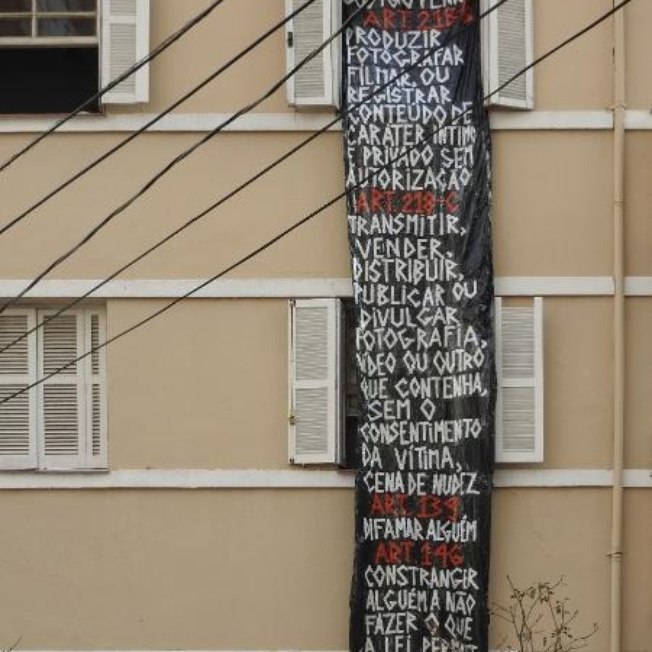 ART. 216-B
PRODUZIR
FOTOGRAFAR
FILMAR, OU
REGISTRAR
CONTEÚDO DE
CARÁTER ÍNTIMO
E PRIVADO SEM
AUTORIZAÇÃO
ART. 218-C
TRANSMITIR,
VENDER,
DISTRIBUIR,
PUBLICAR OU
DIVULGAR
FOTOGRAFIA,
VÍDEO OU OUTRO
QUE CONTENHA,
SEM O
CONSENTIMENTO
DA VÍTIMA,
CENA DE NUDEZ
ART. 139
DIFAMAR ALGUÉM
ART 146
CONSTRANGER
ALGUÉM A NÃO
FAZER O QUE
A LEI